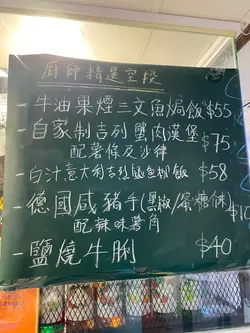 廚師精選
- 牛油果煙三文魚焗飯 $55
- 自家制吉列蟹肉漢堡 $75
配薯條及沙律
- 白汁意大利吉列魚柳飯 $58
- 德國咸豬手(黑椒/蜜糖
配辣味薯角
- 鹽燒牛脷 $40